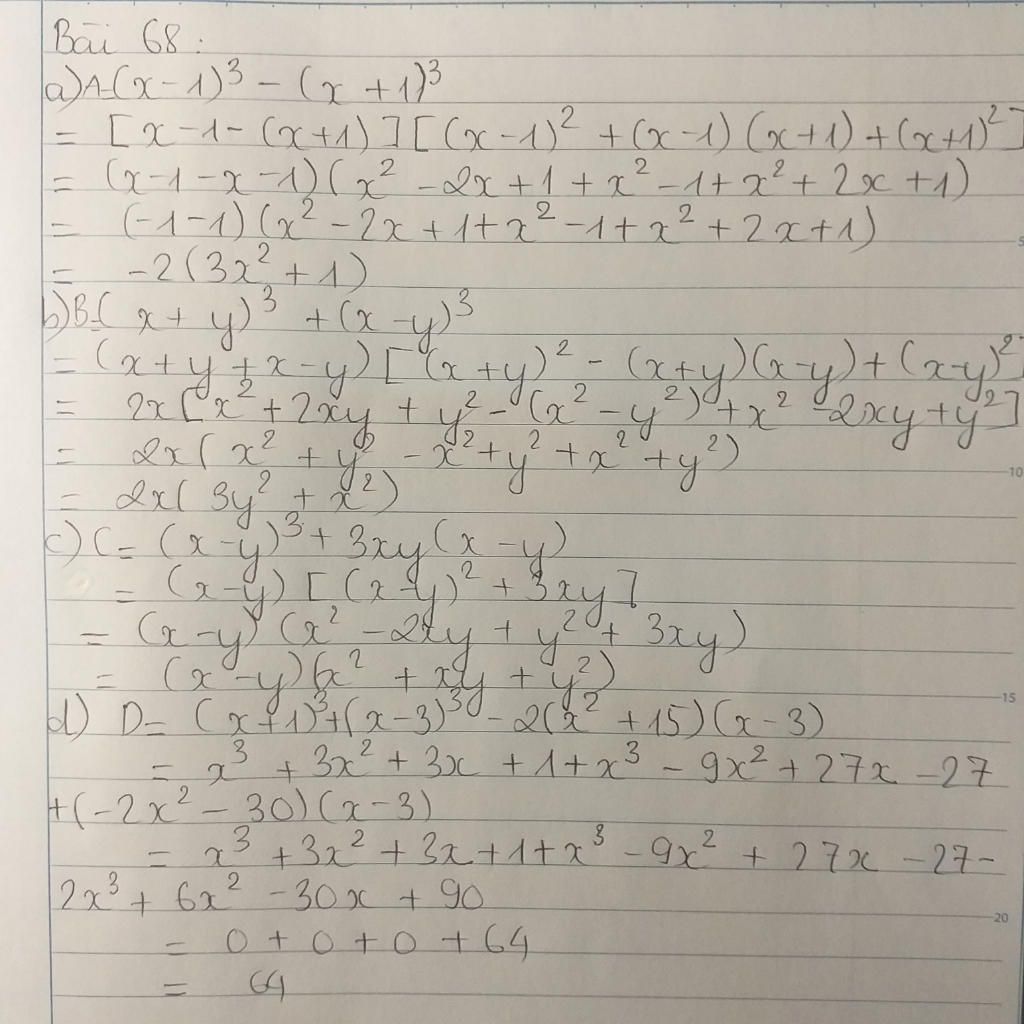 Bài 68:
a) A=(x-1)³ - (x+1)³
= [x-1-(x+1)][(x-1)² + (x-1)(x+1)+(x+1)²]
= (x-1-x-1)(x² -2x+1+x²-1+x²+2x+1)
= (-1-1)(x²-2x+1+x²-1+x²+2x+1)
= -2(3x²+1)
b) B=(x+y)³ +(x-y)³
= (x+y+x-y)[(x+y)² - (x+y)(x-y)+(x-y)²
= 2x[x²+2xy+y²-(x²-y²)+x²-2xy+y²]
= 2x(x²+y²-x²+y²+x²+y²)
= 2x(3y²+x²)
c) C= (x-y)³+3xy(x-y)
= (x-y)[(x-y)²+3xy]
= (x-y)(x²-2xy+y²+3xy)
= (x-y)(x²+xy+y²)
d) D= (x+1)³+(x-3)³-2(x²+15)(x-3)
= x³+3x²+3x+1+x³-9x²+27x-27
+(-2x²-30)(x-3)
= x³+3x²+3x+1+x³-9x²+27x-27-
2x³+6x²-30x+90
= 0+0+0+64
= 64
5
10
15
20